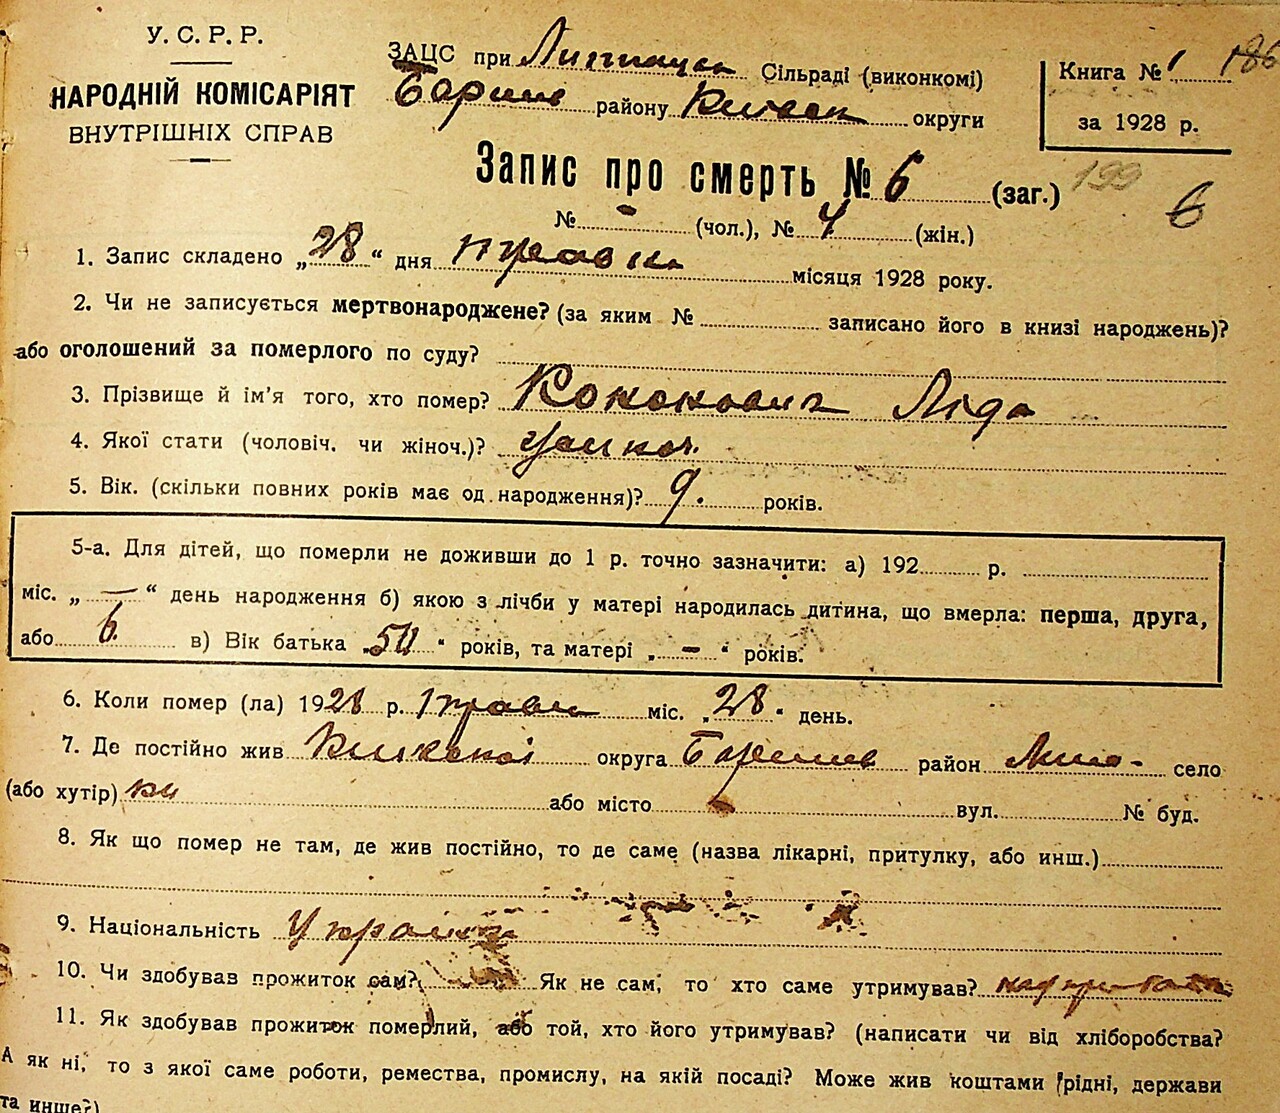 У. С. Р. Р.
НАРОДНІЙ КОМІСАРІЯТ
ВНУТРІШНІХ СПРАВ
ЗАЦС при Сільраді (виконкомі)
Баришів району Київськ округи
Книга № 1 186
за 1928 р.
Запис про смерть № 6 (заг.) 199 6
№ - (чол.), № 4 (жін.)
1. Запис складено „28“ дня травня місяця 1928 року.
2. Чи не записується мертвонароджене? (за яким № записано його в книзі народжень)?
або оголошений за померлого по суду?
3. Прізвище й ім'я того, хто помер? Ліда
4. Якої стати (чоловіч. чи жіноч.)?
5. Вік. (скільки повних років має од народження)? 9. років.
5-а. Для дітей, що померли не доживши до 1 р. точно зазначити: а) 192 р.
міс. „ — “ день народження б) якою з лічби у матері народилась дитина, що вмерла: перша, друга,
або 6. в) Вік батька „50“ років, та матері „ - “ років.
6. Коли помер (ла) 1928 р. травн міс. „28“ день.
7. Де постійно жив Київської округа Баришів район село
(або хутір) ки або місто - вул. № буд.
8. Як що помер не там, де жив постійно, то де саме (назва лікарні, притулку, або инш.)
9. Національність
10. Чи здобував прожиток сам? Як не сам, то хто саме утримував?
11. Як здобував прожиток померлий, або той, хто його утримував? (написати чи від хліборобства?
А як ні, то з якої саме роботи, ремества, промислу, на якій посаді? Може жив коштами рідні, держави
та инше?)